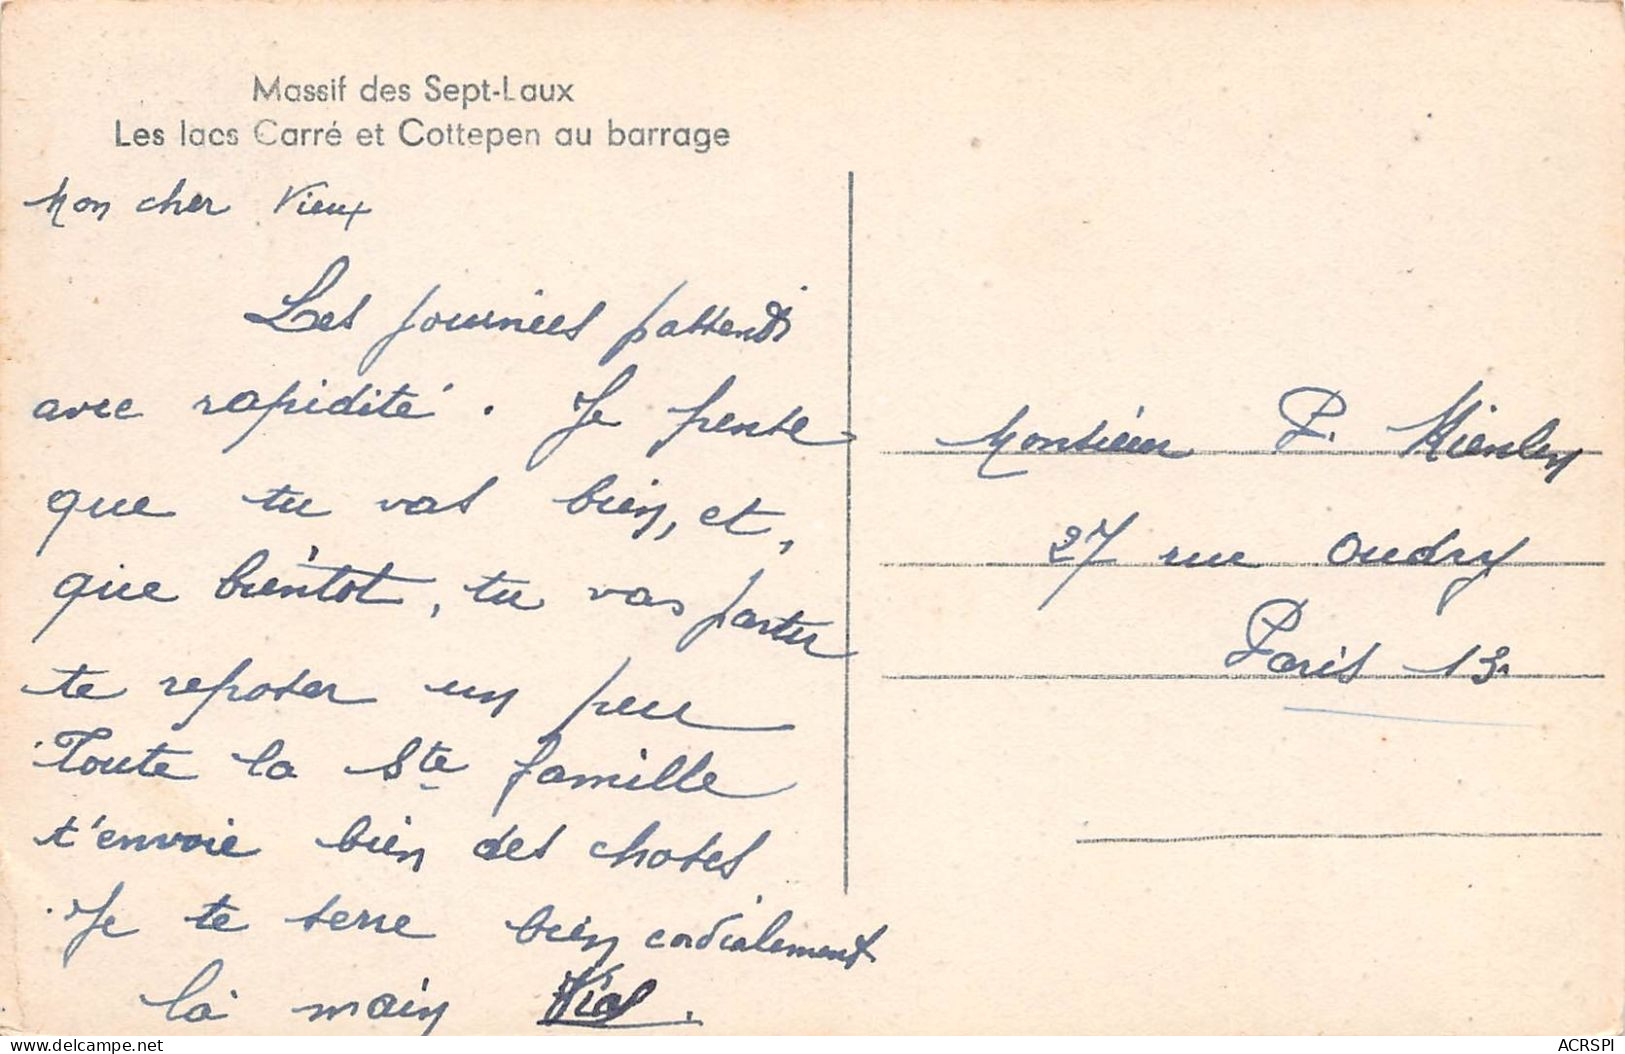 Massif des Sept-Laux
Les lacs Carré et Cottepen au barrage
Mon cher Vieux
Les journées passent
avec rapidité. Je pense
que tu vas bien, et,
que bientôt, tu vas partir
te reposer un peu
Toute la Ste famille
t'envoie bien des choses
Je te serre bien cordialement
la main
Monsieur P.
27 rue Oudry
Paris 13.
delcampe.net
ACRSPI